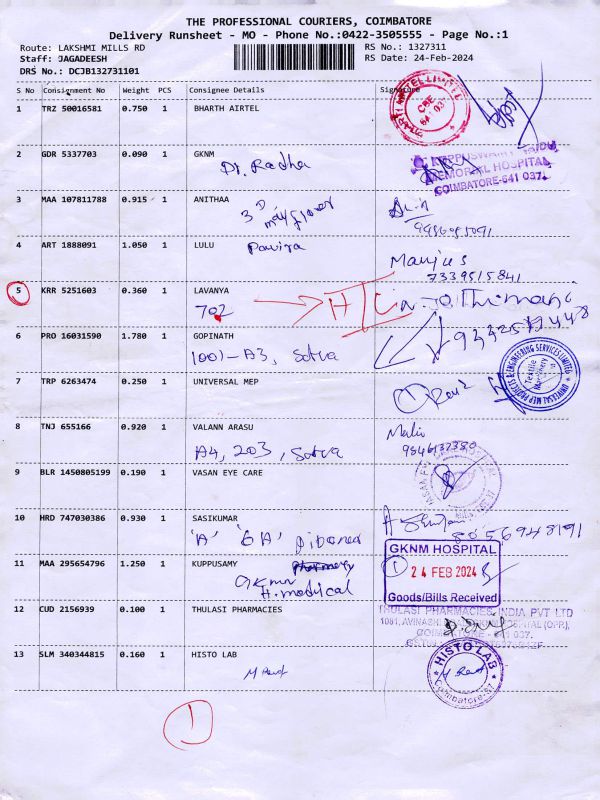 THE PROFESSIONAL COURIERS, COIMBATORE
Delivery Runsheet - MO - Phone No.:0422-3505555 - Page No.:1
Route: LAKSHMI MILLS RD
RS No.: 1327311
Staff: JAGADEESH
RS Date: 24-Feb-2024
DRS No.: DCJB132731101
S No Consignment No Weight PCS Consignee Details Signature
1 TRZ 50016581 0.750 1 BHARTH AIRTEL
2 GDR 5337703 0.090 1 GKNM
Dr. Radha
KUPPUSWAMY NAIDU
MEMORIAL HOSPITAL
COIMBATORE-641 037.
3 MAA 107811788 0.915 1 ANITHAA
3rd mayflower
4 ART 1888091 1.050 1 LULU
Pavira
7339515841
5 KRR 5251603 0.360 1 LAVANYA
702
6 PRO 16031590 1.780 1 GOPINATH
1001-A3, Sotva
UNIVERSAL MEP PROJECTS & ENGINEERING SERVICES LIMITED
Textile Machinery
7 TRP 6263474 0.250 1 UNIVERSAL MEP
1
8 TNJ 655166 0.920 1 VALANN ARASU
A4, 203, Sotva
9 BLR 1450805199 0.190 1 VASAN EYE CARE
10 HRD 747030386 0.930 1 SASIKUMAR
'A' 6A'
8056948191
11 MAA 295654796 1.250 1 KUPPUSAMY
Gkmn
H.modical
GKNM HOSPITAL
1 24 FEB 2024
Goods/Bills Received
12 CUD 2156939 0.100 1 THULASI PHARMACIES
THULASI PHARMACIES INDIA PVT LTD
COIMBATORE - 641 037.
13 SLM 340344815 0.160 1 HISTO LAB
HISTO LAB
Coimbatore-37
1